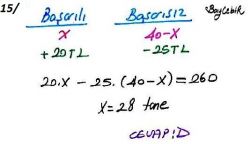 15/ Başarılı Başarısız
x 40-x
+20TL -25TL
20.x - 25.(40-x) = 260
x = 28 tane
CEVAP:D